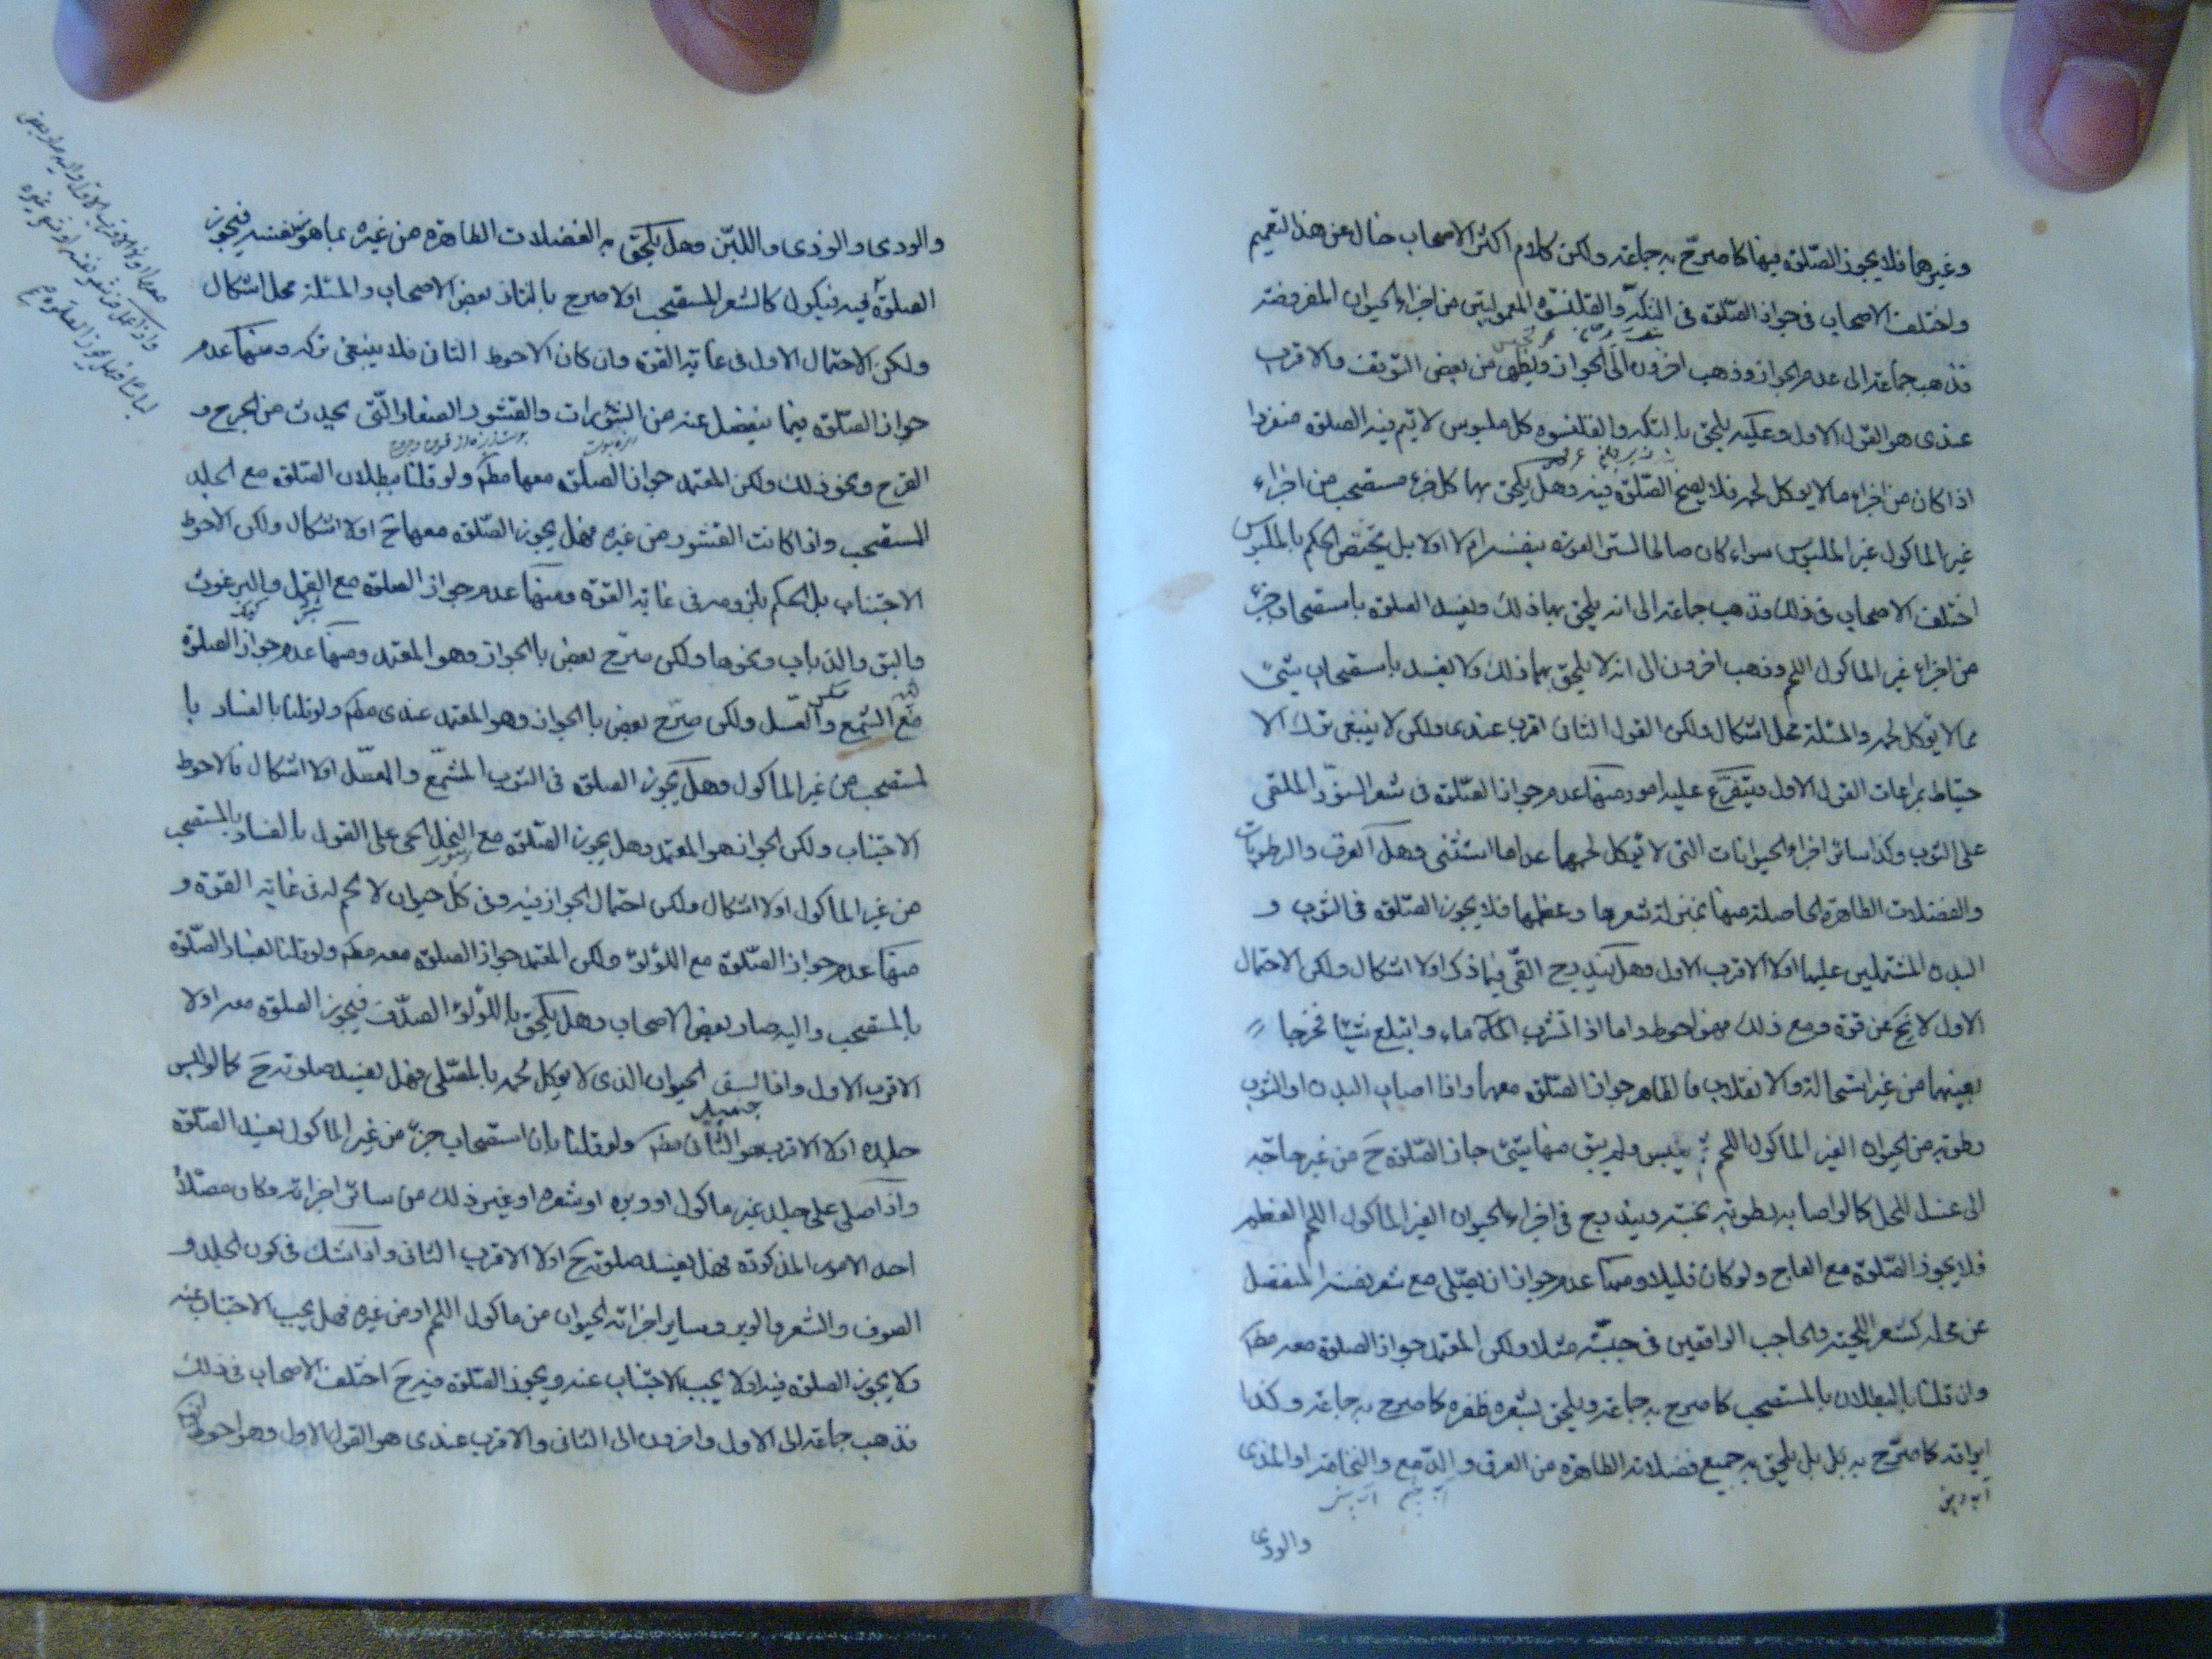 وغيرهما فلا يجوز الصّلوة فيها كما صرّح به جماعة ولكن كلام اكثر الاصحاب خال عن هذا لتعميم
واختلف الاصحاب فى جواز الصّلوة فى التكّة والقلنسوة المعمولتين من اجزاء الحيوان المفروضة
فذهب جماعة الى عدم الجواز وذهب اخرون الى الجواز ويظهر من بعض التوقف والاقرب
عندى هو القول الاول وعليه يلحق بالتكه والقلنسوه كل ملبوس لا يتم فيه الصلوة منفردا
اذا كان من اجزاء ما لا يوكل لحمه فلا يصحّ الصّلوة فيه وهل يلحق بهما كل جزء مستصحب من اجزاء
غير الماكول غير الملبوس سواء كان صالحا لستر العورة بنفسه ام لا اولا بل يختص الحكم بالملبوس
اختلف الاصحاب فى ذلك فذهب جماعة الى انه يلحق بهما ذلك ويفسد الصلوة باستصحاب جزء
من اجزاء غير الماكول اللحم وذهب اخرون الى انه لا يلحق بهما ذلك ولا يفسد باستصحاب شىء
مما لا يؤكل لحمه والمسئلة محل اشكال ولكن القول الثانى اقرب عندى ولكن لا ينبغى ترك الا
حتياط بمراعات القول الاول ويتفرّع عليه امور منها عدم جواز الصّلوة فى شعر السنّور الملقى
على الثوب وكذا سائر اجزاء الحيوانات التى لا يؤكل لحمها عدا ما استثنى وهل العرق والرطوبات
والفضلات الطاهرة الحاصلة منها بمنزلة شعرها وعظمها فلا يجوز الصّلوة فى الثوب و
البدن المشتملين عليها اولا الاقرب الاول وهل يندرج القّى فيما ذكر اولا اشكال ولكن الاحتمال
الاول لا يخ عن قوة ومع ذلك فهو احوط واما اذا شرب الماء وابتلع شيئا فخرجا
بعينهما من غير استحالة ولا انقلاب فالظاهر جواز الصّلوة معهما واذا اصاب البدن او الثوب
رطوبة من الحيوان الغير الماكول اللحم ثم يبس ولم يبق منها شىء جاز الصّلوة ح من غير حاجة
الى غسل المحل كما لو اصابه رطوبة نجسة ويندرج فى اجزاء الحيوان الغير الماكول اللحم العظم
فلا يجوز الصّلوة مع العاج ولو كان قليلا ومنها عدم جواز ان يصّلى مع شعر نفسه المنفصل
عن محله كشعر اللحية والحاجب الواقعين فى جبّته مثلا ولكن المعتمد جواز الصلوة معه مطم
وان قلنا بالبطلان بالمستصحب كما صرح به جماعة ويلحق بشعره ظفره كما صرح به جماعة وكذا
كما صرّح به بل بل يلحق به جميع فضلاته الطاهرة من العرق والدّمع والنخامة والمذى
والودى
والودى والوذى واللبن وهل يلحق به الفضلات الطاهرة من غيره بما هو من نفسه فيجوز
الصلوة فيه فيكون كالشعر المستصحب اولا صرح بالثانى بعض الاصحاب والمسئلة محل اشكال
ولكن الاحتمال الاول فى غاية القوة وان كان الاحوط الثانى فلا ينبغى تركه ومنها عدم
جواز الصّلوة فيما ينفصل عنه من البثورات والقشور الصغار الّتى يحدث من الجرح و
القرح ونحو ذلك ولكن المعتمد جواز الصلوة معها مطم ولو قلنا ببطلان الصّلوة مع الجلد
المستصحب واذا كانت القشور من غيره فهل يجوز الصّلوة معها ح اولا اشكال ولكن الاحوط
الاجتناب بل الحكم بلزومه فى غاية القوة ومنها عدم جواز الصلوة مع القمل والبرغوث
والبق والذباب ونحوها ولكن صرّح بعض بالجواز وهو المعتمد ومنها عدم جواز الصلوة
مع الشمع والعسل ولكن صرّح بعض بالجواز وهو المعتمد عندى مطم ولو قلنا بالفساد با
لمستصحب من غير الماكول وهل يجوز الصلوة فى الثوب المشمّع والمعسّل اولا اشكال فالاحوط
الاجتناب ولكن الجواز هو المعتمد وهل يجوز الصّلوة مع النحل الحى على القول بالفساد بالمستصحب
من غير الماكول اولا اشكال ولكن احتمال الجواز فيه وفى كل حيوان لا لحم له فى غاية القوة و
منها عدم جواز الصّلوة مع اللؤلؤ ولكن المعتمد جواز الصلوة معه مطم ولو قلنا بفساد الصّلوة
بالمستصحب واليه صار بعض الاصحاب وهل يلحق باللؤلؤ الصدّف فيجوز الصلوة معه اولا
الاقرب الاول واذا لسق الحيوان الذى لا يوكل لحمه بالمصّلى فهل يفسد صلوته ح كما لو لبس
جلده اولا الاقرب هو الثانى مطم ولو قلنا بان استصحاب جزء من غير الماكول يفسد الصّلوة
واذا صلى على جلد غير ماكول او وبره او شعره او غير ذلك من سائر اجزائه وكان مصّلاه
احد الامور المذكورة فهل يفسد صلوته ح اولا الاقرب الثانى واذا شك فى كون الجلد و
الصوف والشعر والوبر وساير اجزاء الحيوان من ماكول اللحم او من غيره فهل يجب الاجتناب عنه
ولا يجوز الصلوة فيه اولا يجب الاجتناب عنه ويجوز الصّلوة فيه ح اختلف الاصحاب فى ذلك
فذهب جماعة الى الاول واخرون الى الثانى والاقرب عندى هو القول الاول وهو احوط